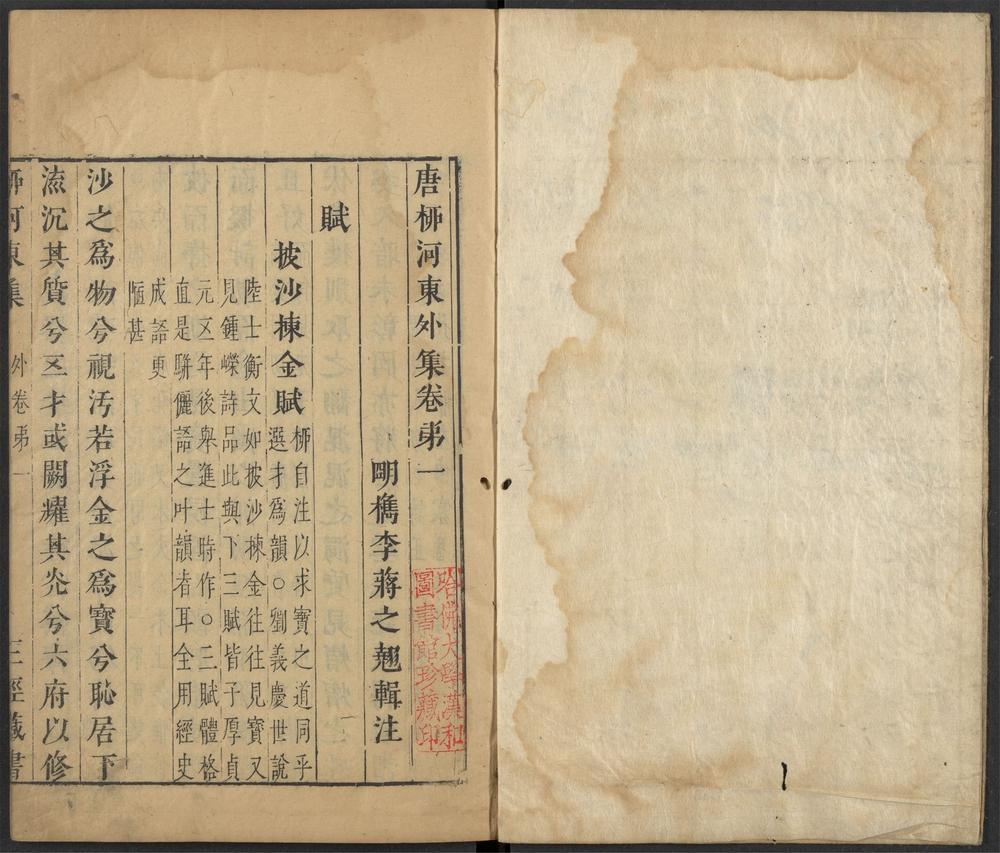 唐柳河東外集卷苐一
明檇李蔣之翹輯注
賦
披沙揀金賦
柳自注以求寶之道同乎
選才爲韻○劉義慶世說
陸士衡文如披沙揀金往往見寶又
見鍾嶸詩品此與下三賦皆子厚貞
元五年後舉進士時作○三賦體格
直是騈儷語之叶韻者耳全用經史
成語更
恆甚
沙之爲物兮視汚若浮金之爲寶兮恥居下
流沉其質兮五才或闕耀其光兮六府以修
柳河東集
外卷苐一
三徑藏書
哈佛大學漢和
圖書館珍藏印